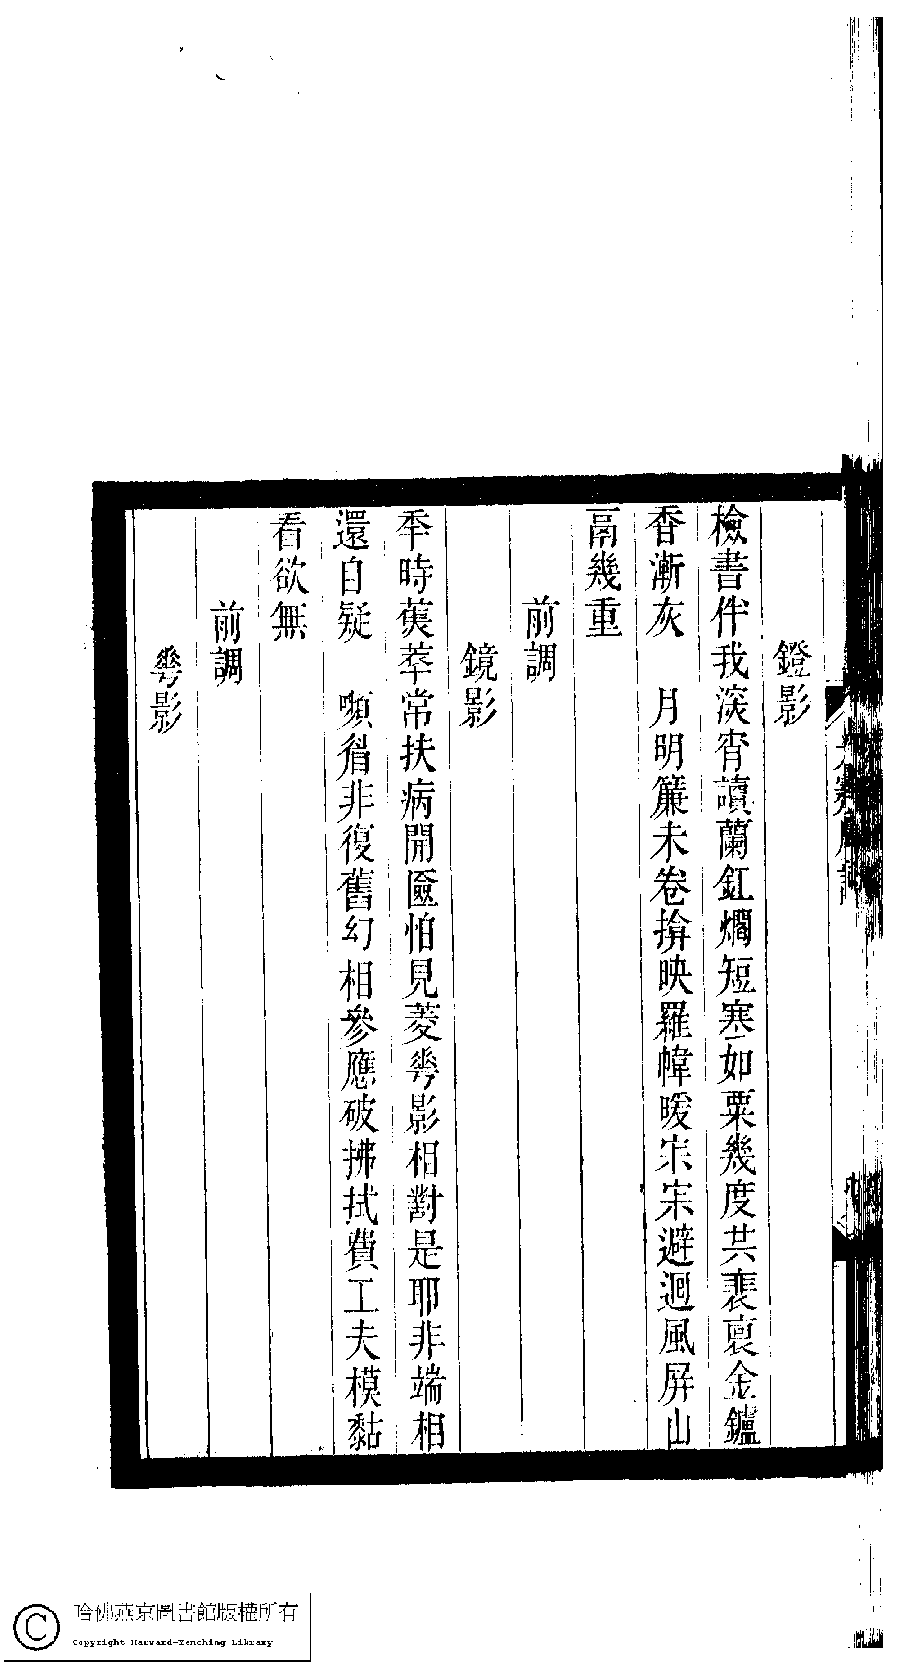 鐙影
檢書伴我深宵讀蘭釭燗短寒如粟幾度共裴裛金鑪
香漸灰　月明簾未卷揜映羅幃暖宋宋避迴風屏山
鬲幾重
前調
鏡影
秊時蕉萃常扶病開匳怕見菱㠭影相對是耶非端相
還自疑　嚬眉非復舊幻相參應破拂拭費工夫模黏
看欲無
前調
㠭影
哈佛燕京圖書館版權所有
Copyright Harvard-Yenching Library